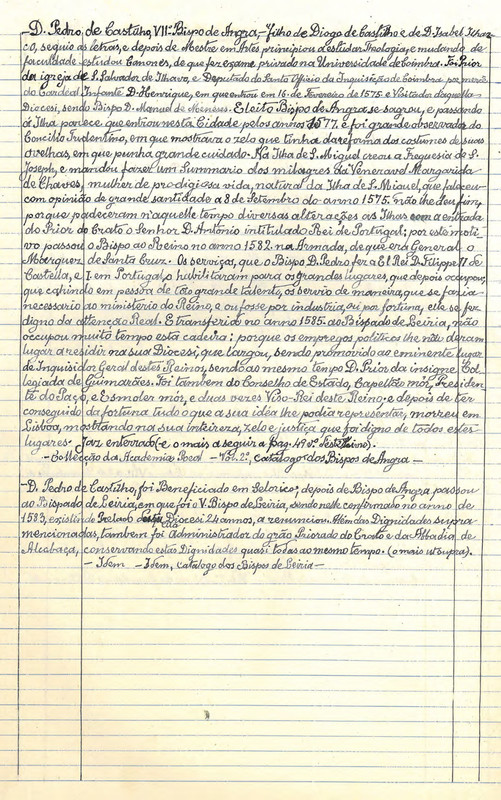 -D. Pedro de Castilho, VII-Bispo de Angra,- filho de Diogo de Castilho e de D. Isabel Ilhar-
co, seguio as letras, e depois de Mestre em Artes principiou a estudar Theologia, e mudando de
faculdade estudou Canones, de que fez exame privado na Universidade de Coimbra. Foi Prior
da igreja de S. Salvador de Ilhavo, e Deputado do Santo Officio da Inquisição de Coimbra por mercê
do Cardeal Infante D. Henrique, em que entrou em 16 de Fevereiro de 1575 e Visitador daquella
Diocesi, sendo Bispo D. Manuel de Meneses. Eleito Bispo de Angra se sagrou, e passando
á Ilha parece que entrou nesta Cidade pelos annos 1577, e foi grande observador do
Concilio Tridentino, em que mostrava o zelo que tinha da reforma dos costumes de suas
ovelhas, em que punha grande cuidado. Na Ilha de S. Miguel creou a Freguesia de S.
Joseph, e mandou fazer um Summario dos milagres da Veneravel Margarida
de Chaves, mulher de prodigiosa vida, natural da Ilha de S. Miguel, que faleceu
com opinião de grande santidade a 8 de Setembro do anno 1575. não lhe deu fim,
porque padeceram n'aquelle tempo diversas alterações as Ilhas com a entrada
do Prior do Crato o Senhor D. Antonio intitulado Rei de Portugal; por este moti-
vo passou o Bispo ao Reino no anno 1582. na Armada, de que era General o
Marquez de Santa Cruz. Os serviços, que o Bispo D. Pedro fez a El Rei D. Filippe II de
Castella, e I em Portugal, o habilitaram para os grandes lugares, que depois occupou,
que cahindo em pessoa de tão grande talento, os servio de maneira, que se fazia
necessario ao ministerio do Reino, e ou fosse por industria, ou por fortuna, elle se fez
digno da attenção Real. E transferido no anno 1585. ao Bispado de Leiria, não
occupou muito tempo esta cadeira: porque os empregos politicos lhe não deram
lugar a residir na sua Diocesi, que largou, sendo promovido ao eminente lugar
de Inquisidor Geral destes Reinos, sendo ao mesmo tempo D. Prior da insigne Col-
legiada de Guimarães. Foi tambem do Conselho de Estado, Capellão mór, Presiden-
te do Paço, e Esmoler mór, e duas vezes Viso-Rei deste Reino: e depois de ter
conseguido da fortuna tudo o que a sua idéa lhe podia representar, morreu em
Lisboa, mostrando na sua inteireza, zelo e justiça que foi digno de todos estes
lugares. Jaz enterrado (- e o mais a seguir a pag.
- Collecção da Academia Real - Vol. 2º, catalogo dos Bispos de Angra -
-D. Pedro de Castilho, foi Beneficiado em Celorico; depois de Bispo de Angra, passou
ao Bispado de Leiria, em que foi o V. Bispo de Leiria, sendo neste confirmado no anno de
1583, Diocesi 24 annos, a renunciou. Alem das Dignidades supra-
mencionadas, tambem foi Administrador do grão Priorado do Crato e da Abadia de
Alcobaça, conservando estas Dignidades quasi todas ao mesmo tempo. (o mais ut supra).
- Idem - Idem, catalogo dos Bispos de Leiria -